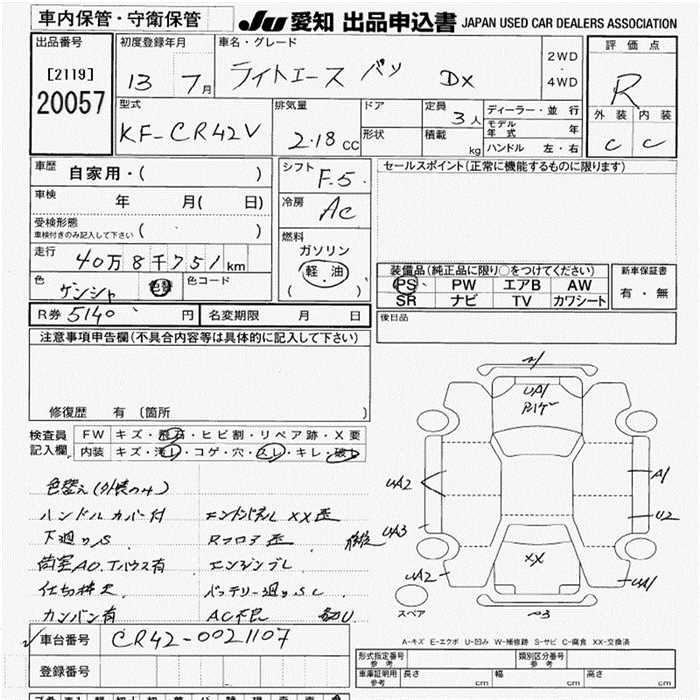 車内保管・守衛保管
JU 愛知 出品申込書 JAPAN USED CAR DEALERS ASSOCIATION
出品番号 初度登録年月 車名・グレード 評価点
[2119] 20057
13 7月 ライトエース バン DX 2WD・4WD R
型式 KF-CR42V
排気量 2.18 CC
ドア 形状
定員 3人 積載 kg
ディーラー・並行
モデル年式 年
ハンドル 左・右
外装 内装
C C
車歴 自家用・( )
車検 年 月( 日)
受検形態 車検付きのみ記入して下さい ( )
走行 40万8千751km
色 ゲンシャ 色替 色コード
R券 5140 円 名変期限 月 日
シフト F.5
冷房 AC
燃料 ガソリン 軽・油 ( )
セールスポイント(正常に機能するものに限ります)
装備品(純正品に限り○をつけてください)
PS PW エアB AW
SR ナビ TV カワシート
新車保証書 有・無
後日品
注意事項申告欄(不具合内容等は具体的に記入して下さい)
修復歴 有 (箇所 )
検査員記入欄
FW キズ・飛石・ヒビ割・リペア跡・X要
内装 キズ・汚レ・コゲ・穴・スレ・キレ・破レ
色替え(外装のみ)
ハンドルカバー付
下廻りS
荷室AO.Tハウス有
仕切棒欠
カンバン有
RフロアX歪
エンジンブレ
バッテリー廻りSC
AC不良
UA1
A1
UA2
U2
UA3
UA2
UA1
XX
スペア
A-キズ E-エクボ U-凹み W-補修跡 S-サビ C-腐食 XX-交換済
車台番号 CR42-0021107
登録番号
形式指定番号 参考 類別区分番号 参考
車庫証明用 参考 長さ cm 幅 cm 高さ cm